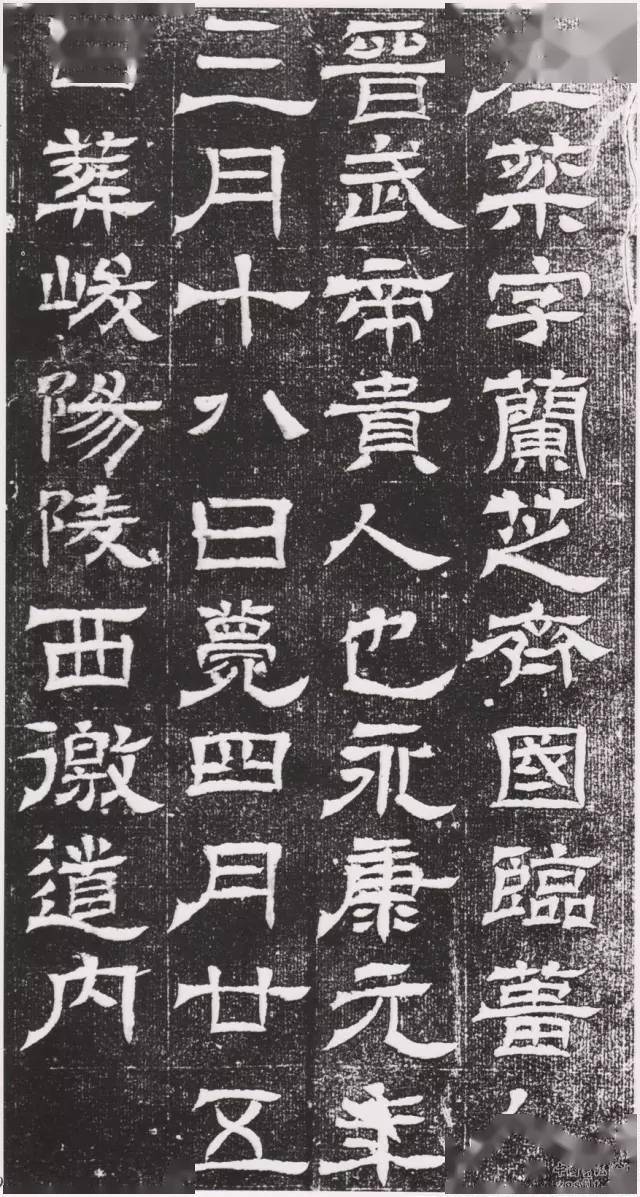 棻字蘭芝齊國臨菑
晉武帝貴人也永康元年
三月十八日薨四月廿五
日葬峻陽陵西徼道内